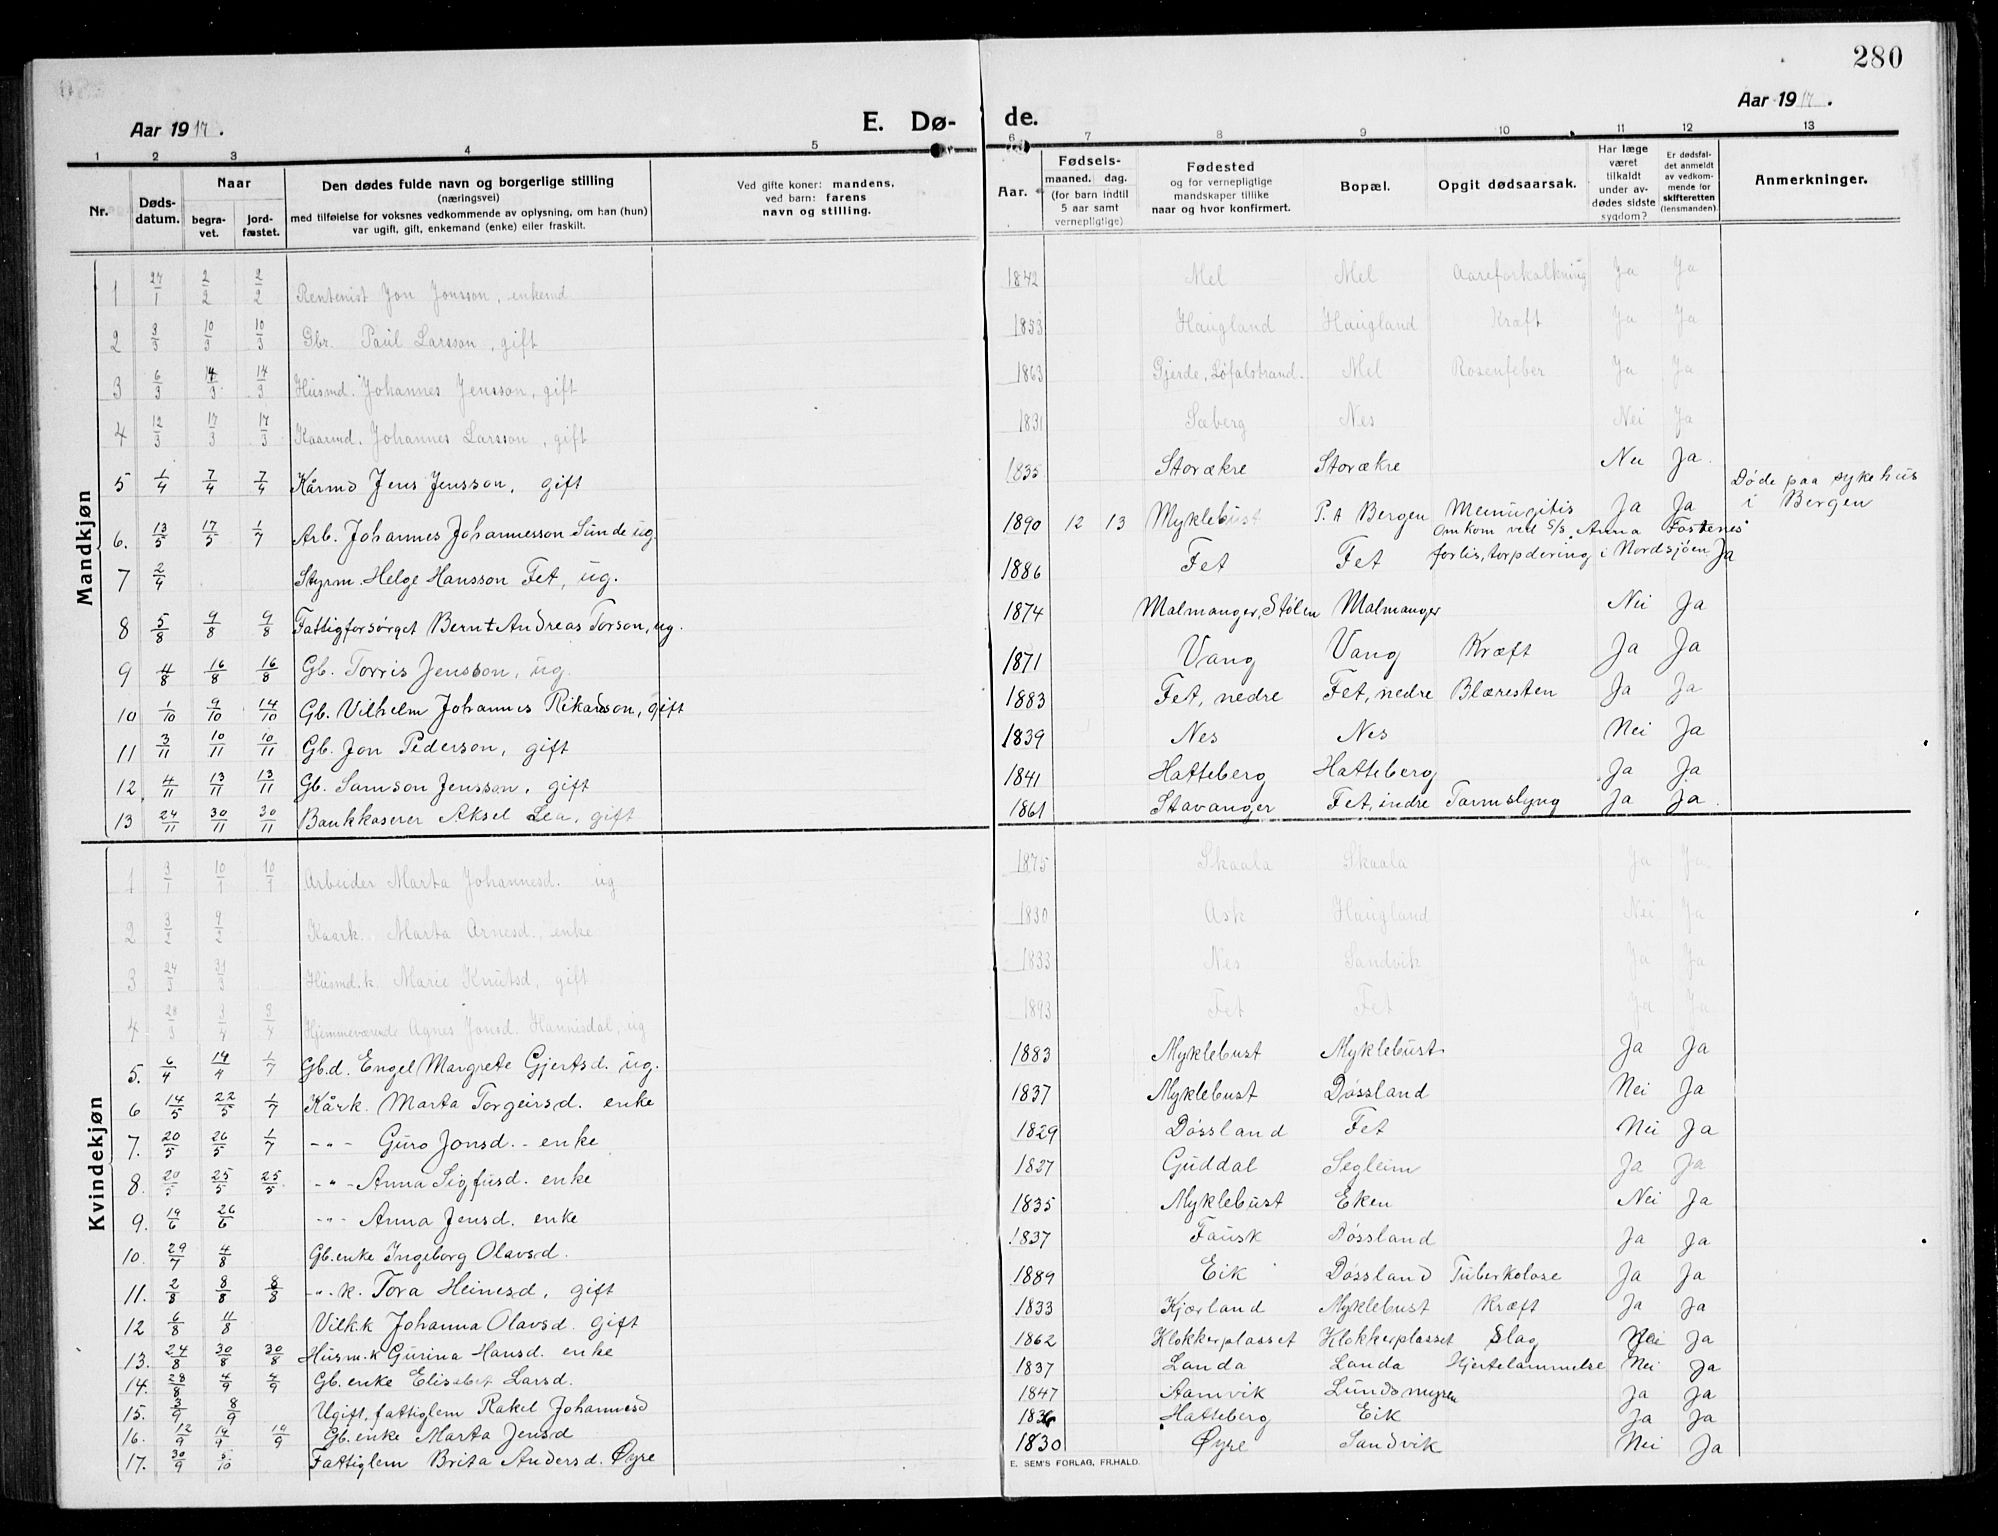 280
Aar 1917.
E. Dø-
de.
Aar 1917.
1 2 3 4 5 6 7 8 9 10 11 12 13
Nr.
Døds-
datum.
Naar
begra-
vet.
jord-
fæstet.
Den dødes fulde navn og borgerlige stilling
(næringsvei)
med tilføielse for voksnes vedkommende av oplysning, om han (hun)
var ugift, gift, enkemand (enke) eller fraskilt.
Ved gifte koner: mandens,
ved barn: farens
navn og stilling.
Aar.
Fødsels-
maaned. dag.
(for barn indtil
5 aar samt
vernepligtige)
Fødested
og for vernepligtige
mandskaper tillike
naar og hvor konfirmert.
Bopæl.
Opgit dødsaarsak.
Har læge
været
tilkaldt
under av-
dødes sidste
sygdom?
Er dødsfal-
det anmeldt
av vedkom-
mende for
skifteretten
(lensmanden).
Anmerkninger.
Mandkjøn
1 27/1 2/2 2/2 Rentenist Jon Jonsson, enkemd 1842 Mel Mel Aareforkalkning Ja Ja
2 3/3 10/3 10/3 Gbr. Paul Larsson, gift 1853 Haugland Haugland Kræft Ja Ja
3 6/3 14/3 14/3 Husmd. Johannes Jensson, gift 1863 Gjerde, Løfalstrand. Mel Rosenfeber Ja Ja
4 12/3 17/3 17/3 Kaarmd. Johannes Larsson, gift 1831 Sæberg Nes Nei Ja
5 1/4 7/4 7/4 Kårmd Jens Jensson, gift 1835 Storækre Storækre Nei Ja.
6. 13/5 17/5 1/7 Arb. Johannes Johannesson Sunde ug 1890 12 13 Myklebust P.t Bergen Meningitis Ja Ja Døde paa sykehus
i Bergen
7 2/4 Styrm. Helge Hansson Fet, ug. 1886 Fet Fet Omkom ved S/s. Anna Fostenes'
forlis, torpdering i Nordsjøen Ja
8 5/8 9/8 9/8 Fattigforsørget Bernt Andreas Torson, ug. 1874 Malmanger, Stølen Malmanger Nei Ja
9 11/8 16/8 16/8 Gb. Torris Jensson, ug. 1871 Vang Vang Kræft Ja Ja
10 1/10 9/10 14/10 Gb. Vilhelm Johannes Rikardson, gift 1883 Fet, nedre Fet, nedre Blæresten Ja Ja
11 3/11 10/11 10/11 Gb. Jon Pederson, gift 1839 Nes Nes Nei Ja
12 4/11 13/11 13/11 Gb. Samson Jensson, gift 1841 Hatteberg Hatteberg Ja Ja
13 24/11 30/11 30/11 Bankkaserer Aksel Lea, gift 1861 Stavanger Fet, indre Tarmslyng Ja Ja.
Kvindekjøn
1 3/1 10/1 10/1 Arbeider Marta Johannesd. ug 1875 Skaala Skaala Ja Ja
2 3/2 9/2 Kaark. Marta Arnesd., enke 1830 Ask Haugland Nei Ja
3 24/3 31/3 Husmd.k. Marie Knutsd, gift 1833 Nes Sandvik Ja Ja
4 28/3 3/4 8/4 Hjemmeværende Agnes Jonsd. Hannisdal, ug 1893 Fet Fet Ja Ja
5. 6/4 14/4 1/7 Gb.d. Engel Margrete Gjertsd. ug. 1883 Myklebust Myklebust Ja Ja
6 14/5 22/5 1/7 Kårk. Marta Torgeirsd. enke 1837 Myklebust Døssland Nei Ja
7. 20/5 26/5 1/7 -"- Guro Jonsd. - enke 1829 Døssland Fet Nei Ja
8. 20/5 25/5 25/5 -"- Anna Sigfusd. enke 1827 Guddal Segleim Ja Ja
9. 19/6 26/6 -"- Anna Jensd. enke 1835 Myklebust Eken Nei Ja
10. 29/7 4/8 Gb.enke Ingeborg Olavsd. 1837 Fausk Døssland Ja Ja
11. 2/8 8/8 8/8 -"- k. Tora Heinesd, gift 1889 Eik Døssland Tuberkolose Ja Ja
12 6/8 11/8 Vilk.k Johanna Olavsd. gift 1833 Kjærland Myklebust Kræft Ja Ja
13. 24/8 30/8 30/8 Husm.k Gurina Hansd. enke 1862 Klokkerplasset Klokkerplasset Slag Nei Ja
14. 28/8 4/9 4/9 Gb. enke Elisabet Larsd. 1837 Landa Landa Hjertelammelse Nei Ja
15. 3/9 8/9 Ugift, fattiglem Rakel Johannesd 1847 Aamvik Lundsmyren Ja Ja
16. 12/9 19/9 19/9 Gb. enke Marta Jensd 1836 Hatteberg Eik Ja Ja
17. 30/9 5/10 Fattiglem Brita Andersd. Øyre 1830 Øyre Sandvik Nei Ja
E. SEM'S FORLAG, FR.HALD.